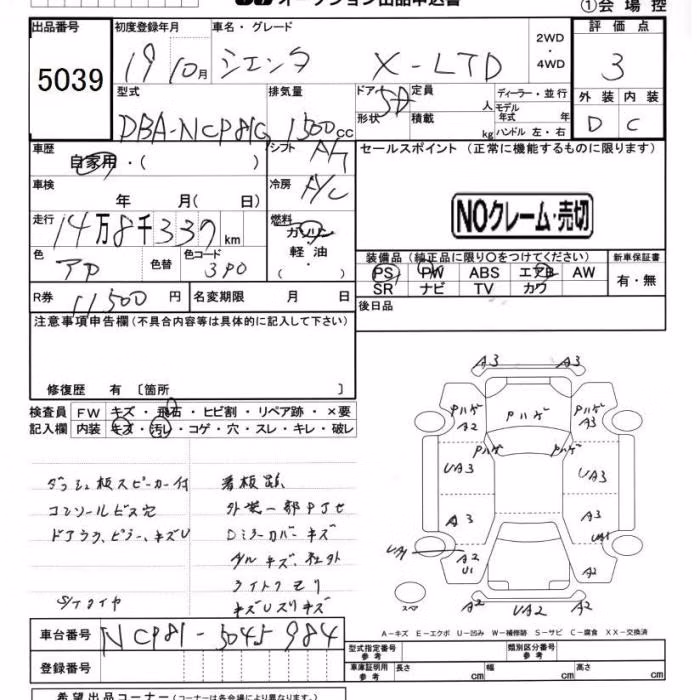 オークション出品申込書
①会 場 控
出品番号
5039
初度登録年月
19 10月
車名・グレード
シエンタ X-LTD
2WD
・
4WD
評 価 点
3
外 装 内 装
D C
型式
DBA-NCP81G
排気量
1500 cc
ドア
5D
形状
定員
人
積載
kg
ディーラー・並行
モデル
年式 年
ハンドル 左・右
車歴
自家用・( )
シフト
冷房
A/C
セールスポイント (正常に機能するものに限ります)
NOクレーム・売切
車検
年 月( 日)
走行
14万8千337 km
燃料
ガソリン
軽 油
( ・ )
色
色替
色コード
3P0
装備品 (純正品に限り〇をつけてください)
PS PW ABS エアB AW
SR ナビ TV カワ
新車保証書
有・無
R券
11500 円
名変期限 月 日
後日品
注意事項申告欄(不具合内容等は具体的に記入して下さい)
修復歴 有 〔箇所 〕
検査員
記入欄
FW キズ・飛石・ヒビ割・リペア跡・×要
内装 キズ・汚レ・コゲ・穴・スレ・キレ・破レ
ダッシュ板スピーカー付
コンソールビス穴
ドアウラ、ピラー、キズU
S/タイヤ
看板跡
外装一部PJセ
Dミラーカバーキズ
ホイルキズ、社外
ライトクモリ
キズUスリキズ
A3 A3
Pハゲ Pハゲ Pハゲ
A2 A3
Pハゲ Pハゲ
UA3 UA3
A3 A3
UA1 UA1
A2
U1 A2
スペア
A2 UA2 A2
A-キズ E-エクボ U-凹み W-補修跡 S-サビ C-腐食 XX-交換済
車台番号
NCP81-5045984
登録番号
型式指定番号
参 考
類別区分番号
参 考
車庫証明用
参 考
長さ cm
幅 cm
高さ cm
希望出品コーナー (コーナーは各会場により異なります)